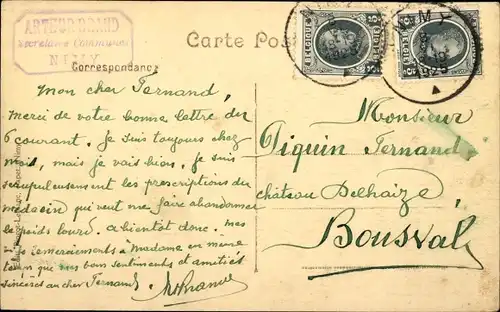 ARTEUR DRAND
Secrétaire Communal
NIMY
Carte Pos
Correspondance
BELGIQUE
BELGIË
NIMY
Mon cher Fernand,
Merci de votre bonne lettre du
6 courant. Je suis toujours chez
moi, mais je vais bien. Je suis
scrupuleusement les prescriptions du
médecin qui veut me faire abandonner
le poids lourd. a bientôt donc. mes
remerciements à Madame en même
temps que mes bons sentiments et amitiés
sincères au cher Fernand.
Monsieur
Piquin Fernand
château Delhaize
Bousval